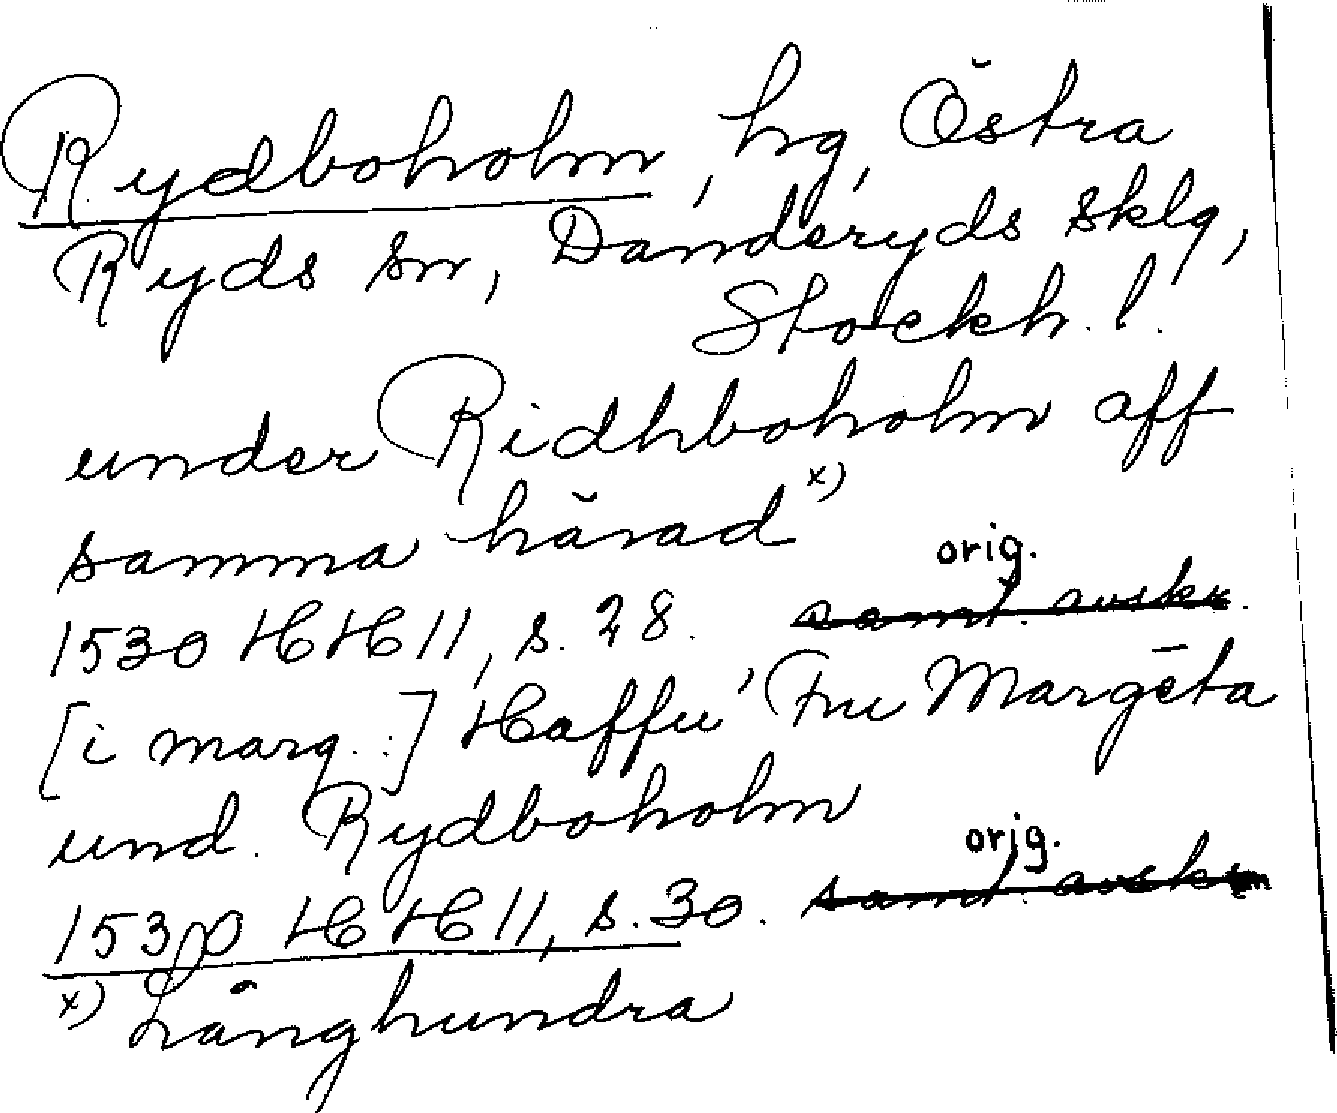 Rydboholm, hg, Östra
Ryds sn, Danderyds sklg,
Stockh. l.
under Ridhboholm aff
samma härad x)
1530 HH 11, s. 28. orig. samt. avskr.
[i marg.:] Haffu' Fru Margēta
und. Rydboholm
1530 HH 11, s. 30. orig. samt. avskr
x) Långhundra